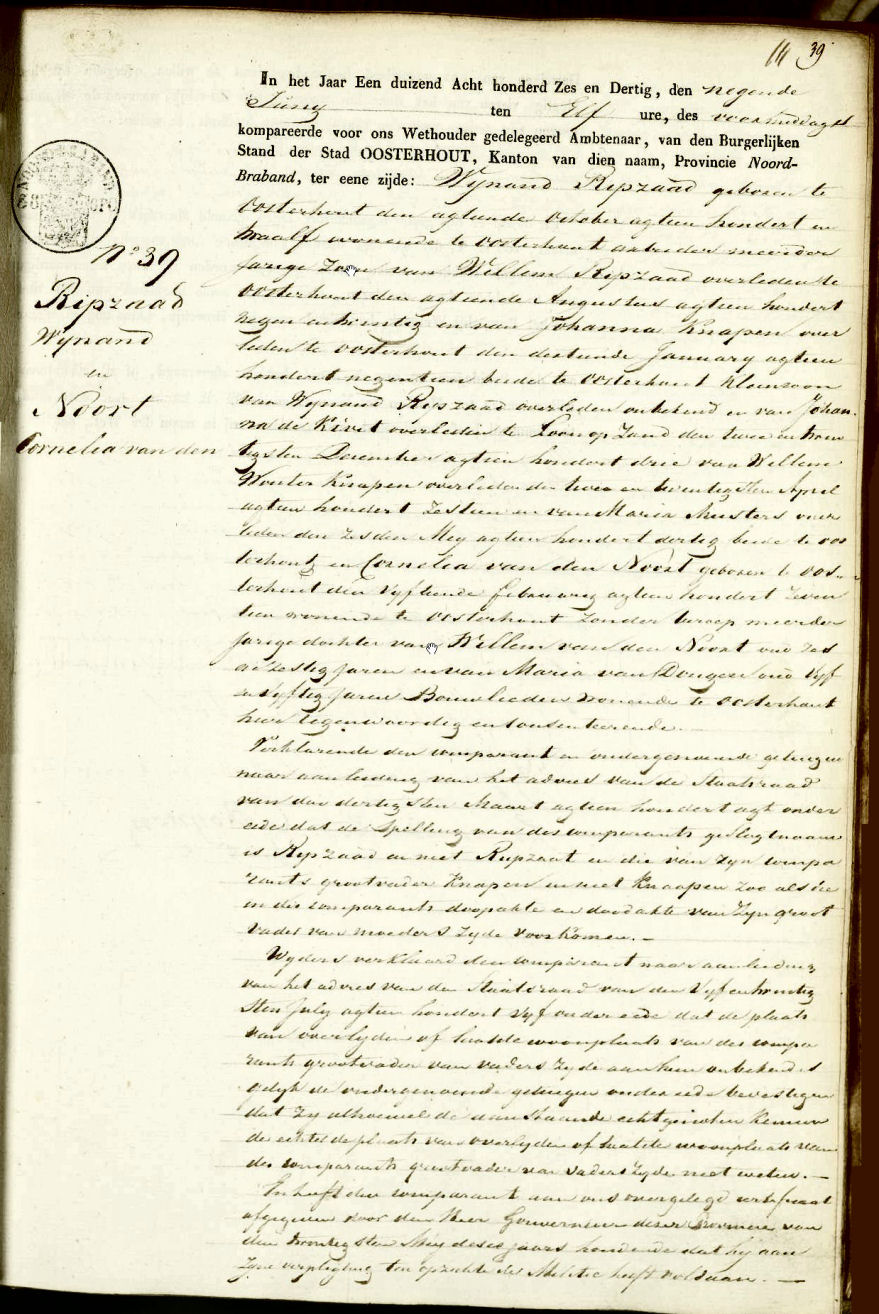 14 39
In het Jaar Een duizend Acht honderd Zes en Dertig, den negende
Juny ten Elf ure, des voormiddags
kompareerde voor ons Wethouder gedelegeerd Ambtenaar, van den Burgerlijken
Stand der Stad OOSTERHOUT, Kanton van dien naam, Provincie Noord-
Braband, ter eene zijde: Wynand Ripzaad geboren te
Oosterhout den agtiende October agtien hondert en
twaalf wonende te Oosterhout arbeider meerder
jarige Zoon van Willem Ripzaad overleden te
Oosterhout den agtiende Augustus agtien hondert
negen en twintig en van Johanna Knapen over
leden te Oosterhout den dertiende January agtien
hondert negentien beide te Oosterhout Kleinzoon
van Wynand Rypszaad overleden onbekend en van Johan
na de Kivit overleden te Loon op Zand den twee en twin
tigsten December agtien hondert drie van Willem
Wouter Knapen overleden den twee en twintigsten April
agtien hondert Zestien en van Maria Musters over
leden den Zesden Mey agtien hondert dertig beide te Oos
terhout, en Cornelia van den Noort geboren te Oos-
terhout den vyftiende february agtien hondert Zeven
tien wonende te Oosterhout Zonder beroep meerder
jarige dochter van Willem van den Noort oud Zes
en Zestig Jaren en van Maria van Dongen oud Vyf
en Vyftig Jaren Bouwlieden wonende te Oosterhout
hier tegenwoordig en consenteerende.
Verklarende den comparant en ondergenoemde getuigen
naar aanleiding van het advies van de Staatsraad
van den dertigsten Maart agtien hondert agt onder
eede dat de Spelling van des comparants geslagtnaam
is Rypzaad en niet Rypzaat en die van Zyn compa
rants grootvader Knapen en niet Knaapen Zoo als die
in des comparants doopakte en doodakte van Zyn groot
vader van moeders Zyde voorkomen.
Wyders verklaard den comparant naar aanleiding
van het advies van den Staatsraad van den Vyf en twintig
Sten July agtien hondert Vyf onder eede dat de plaats
van overlyden of laatste woonplaats van des compa
rants grootvader van vaders Zyde aan hem onbekend is
gelyk de ondergenoemde getuigen onder eede bevestigen
dat Zy alhoewel de aanstaande echtgenoten kennen
de echter de plaats van overlyden of laatste woonplaats van
des comparants grootvader van vaders Zyde niet weten.
En heeft den comparant aan ons overgelegd certificaat
afgegeven door den Heer Gouverneur dezer Provincie van
den twintigsten Mey dezes jaars houdende dat hy aan
Zyne verpligting ten opzichte der Militie heeft voldaan.
N° 39
Ripzaad
Wynand
en
Noort
Cornelia van den